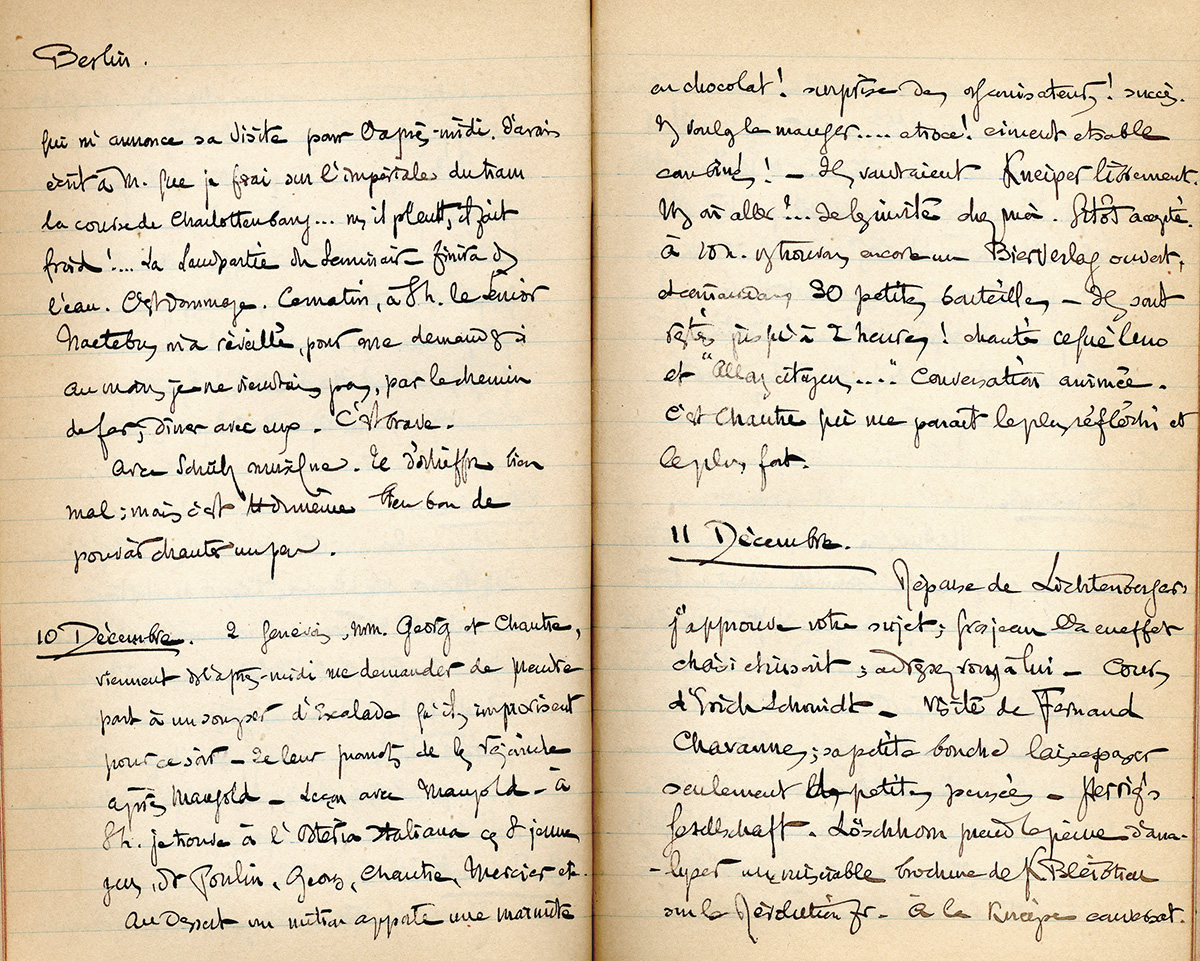 Berlin.
qui m'annonce sa visite pour l'après-midi. J'avais
écrit à M. que je ferai sur l'impériale du tram
la course de Charlottenbourg... mais il pleut, il fait
froid!... La Landpartie du Seminar finira dans
l'eau. C'est dommage. Ce matin, à 8h. le Senior
m'a réveillé, pour me demander si
au moins je ne viendrais pas, par le chemin
de fer, dîner avec eux. C'est brave.
Avec Schulz musique. Je déchiffre bien
mal; mais c'est tout de même bien bon de
pouvoir chanter un peu.
10 Décembre. 2 Genevois, MM. Georg et Chautre,
viennent dès l'après-midi me demander de prendre
part à un souper d'Escalade qu'ils improvisent
pour ce soir – Je leur promets de les rejoindre
après Mangold – Leçon avec Mangold – à
8h. je trouve à l'Osteria Italiana ces 8 jeunes
gens, Dr Poulin, Georg, Chautre, Mercier etc.
Au dessert un mitron apporte une marmite
en chocolat! surprise des organisateurs! succès.
Ils veulent le manger.... atroce! ciment et sable
combinés! – Ils voudraient Kneiper librement.
Mais où aller!... Je les invite chez moi. Sitôt accepté.
à 10h. nous trouvons encore un Bierverlag ouvert,
30 petites bouteilles – Ils sont
restés jusqu'à 2 heures! chanté cé qu'è l'eno
et "Allons citoyens...." Conversation animée.
C'est Chautre qui me paraît le plus réfléchi et
le plus fort.
11 Décembre.
Réponse de Lichtenberger:
j'approuve votre sujet; Grosjean l'a en effet
choisi; adressez-vous à lui – Cours
d'Erich Schmidt – Visite de Fernand
Chavannes; sa petite bouche laisse passer
seulement de petites pensées – Herrig's
Gesellschaft. Löschhorn prend la peine d'ana-
-lyser une misérable brochure de K Bleibtreu
sur la Révolution fr – À la Kneipe conversat.